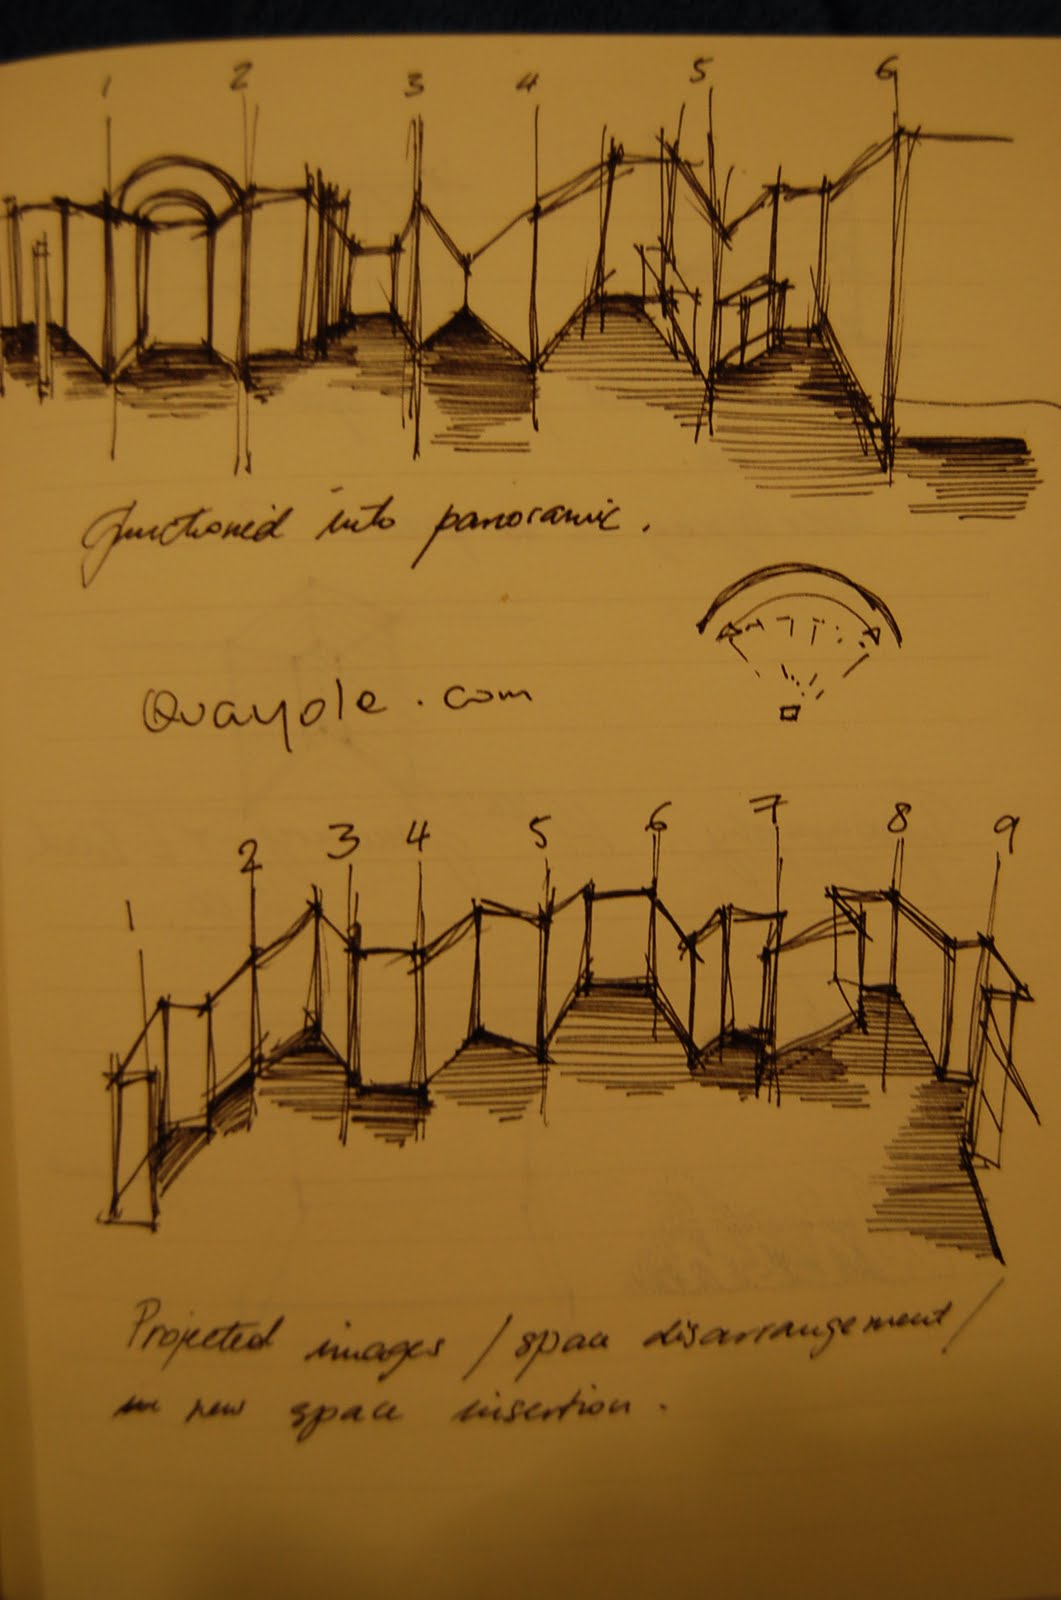 1 2 3 4 5 6
functioned into panoramic.
Quayole.com
1 2 3 4 5 6 7 8 9
Projected images / space disarrangement /
new space insertion.